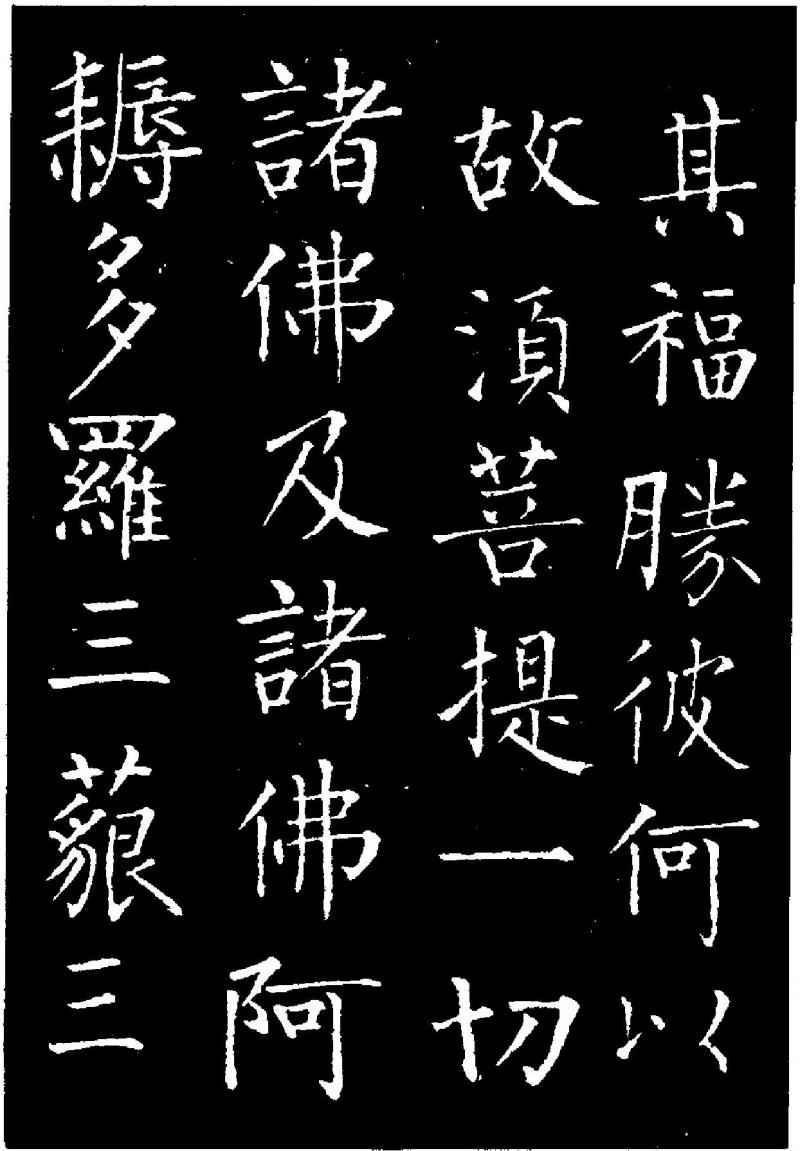 其福勝彼何以
故須菩提一切
諸佛及諸佛阿
耨多羅三藐三